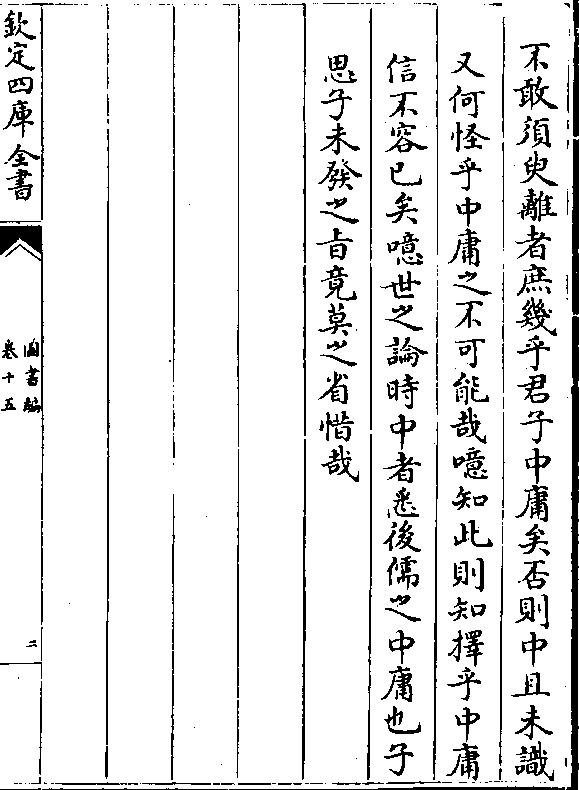 不敢須臾離者庶幾乎君子中庸矣否則中且未識
又何怪乎中庸之不可能哉噫知此則知擇乎中庸
信不容已矣噫世之論時中者悉後儒之中庸也子
思子未發之旨竟莫之省惜哉
欽定四庫全書
圖書編
卷十五
二